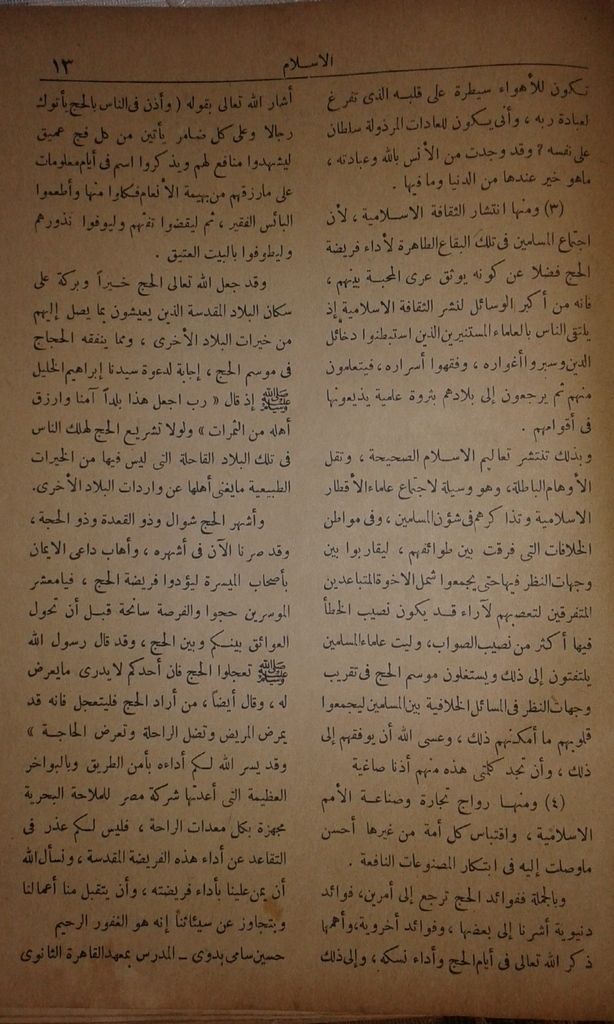 الاسلام
١٣
تكون للأهواء سيطرة على قلبه الذى تفرغ
لعبادة ربه ، وأنى يكون للعادات المرذولة سلطان
على نفسه ? وقد وجدت من الأنس بالله وعبادته ،
ماهو خير عندها من الدنيا وما فيها .
(٣) ومنها انتشار الثقافة الاسلامية ، لأن
اجتماع المسلمين فى تلك البقاع الطاهرة لأداء فريضة
الحج فضلا عن كونه يوثق عرى المحبة بينهم ،
فانه من أكبر الوسائل لنشر الثقافة الاسلامية إذ
يلتقى الناس بالعلماء المستنيرين الذين استبطنوا دخائل
الدين وسبروا أغواره ، وفقهوا أسراره ، فيتعلمون
منهم ثم يرجعون إلى بلادهم بثروة علمية يذيعونها
فى أقوامهم .
وبذلك تنتشر تعاليم الاسلام الصحيحة ، وتقل
الأوهام الباطلة، وهو وسيلة لاجتماع علماء الأقطار
الاسلامية وتذاكرهم فى شؤن المسلمين ، وفى مواطن
الخلافات التى فرقت بين طوائفهم ، ليقاربوا بين
وجهات النظر فيها حتى يجمعوا شمل الاخوة المتباعدين
المتفرقين لتعصبهم لآراء قد يكون نصيب الخطأ
فيها أكثر من نصيب الصواب، وليت علماء المسلمين
يلتفتون إلى ذلك ويستغلون موسم الحج فى تقريب
وجهات النظر فى المسائل الخلافية بين المسلمين ليجمعوا
قلوبهم ما أمكنهم ذلك ، وعسى الله أن يوفقهم إلى
ذلك ، وأن تجد كلمتى هذه منهم أذنا صاغية
(٤) ومنها رواج تجارة وصناعة الأمم
الاسلامية ، واقتباس كل أمة من غيرها أحسن
ماوصلت إليه فى ابتكار المصنوعات النافعة .
وبالجملة ففوائد الحج ترجع إلى أمرين، فوائد
دنيوية أشرنا إلى بعضها ، وفوائد أخروية، وأهمها
ذكر الله تعالى فى أيام الحج وأداء نسكه ، وإلى ذلك
أشار الله تعالى بقوله ( وأذن فى الناس بالحج يأتوك
رجالا وعلى كل ضامر يأتين من كل فج عميق
ليشهدوا منافع لهم ويذكروا اسم فى أيام معلومات
على مارزقهم من بهيمة الأنعام فكلوا منها وأطعموا
البائس الفقير ، ثم ليقضوا تفثهم وليوفوا نذورهم
وليطوفوا بالبيت العتيق .
وقد جعل الله تعالى الحج خيراً وبركة على
سكان البلاد المقدسة الذين يعيشون بما يصل إليهم
من خيرات البلاد الأخرى ، ومما ينفقه الحجاج
فى موسم الحج ، إجابة لدعوة سيدنا إبراهيم الخليل
ﷺ إذ قال « رب اجعل هذا بلداً آمنا وارزق
أهله من الثمرات » ولولا تشريع الحج لهلك الناس
فى تلك البلاد القاحلة التى ليس فيها من الخيرات
الطبيعية مايغنى أهلها عن واردات البلاد الأخرى.
وأشهر الحج شوال وذو القعدة وذو الحجة ،
وقد صرنا الآن فى أشهره ، وأهاب داعى الايمان
بأصحاب الميسرة ليؤدوا فريضة الحج ، فيامعشر
الموسرين حجوا والفرصة سانحة قبل أن تحول
العوائق بينكم وبين الحج ، وقد قال رسول الله
ﷺ تعجلوا الحج فان أحدكم لايدرى مايعرض
له ، وقال أيضاً ، من أراد الحج فليتعجل فانه قد
يمرض المريض وتضل الراحلة وتعرض الحاجة »
وقد يسر الله لكم أداءه بأمن الطريق وبالبواخر
العظيمة التى أعدتها شركة مصر للملاحة البحرية
مجهزة بكل معدات الراحة ، فليس لكم عذر فى
التقاعد عن أداء هذه الفريضة المقدسة ، ونسأل الله
أن يمن علينا بأداء فريضته ، وأن يتقبل منا أعمالنا
ويتجاوز عن سيئاتنا إنه هو الغفور الرحيم
حسين سامى بدوى – المدرس بمعهد القاهرة الثانوى